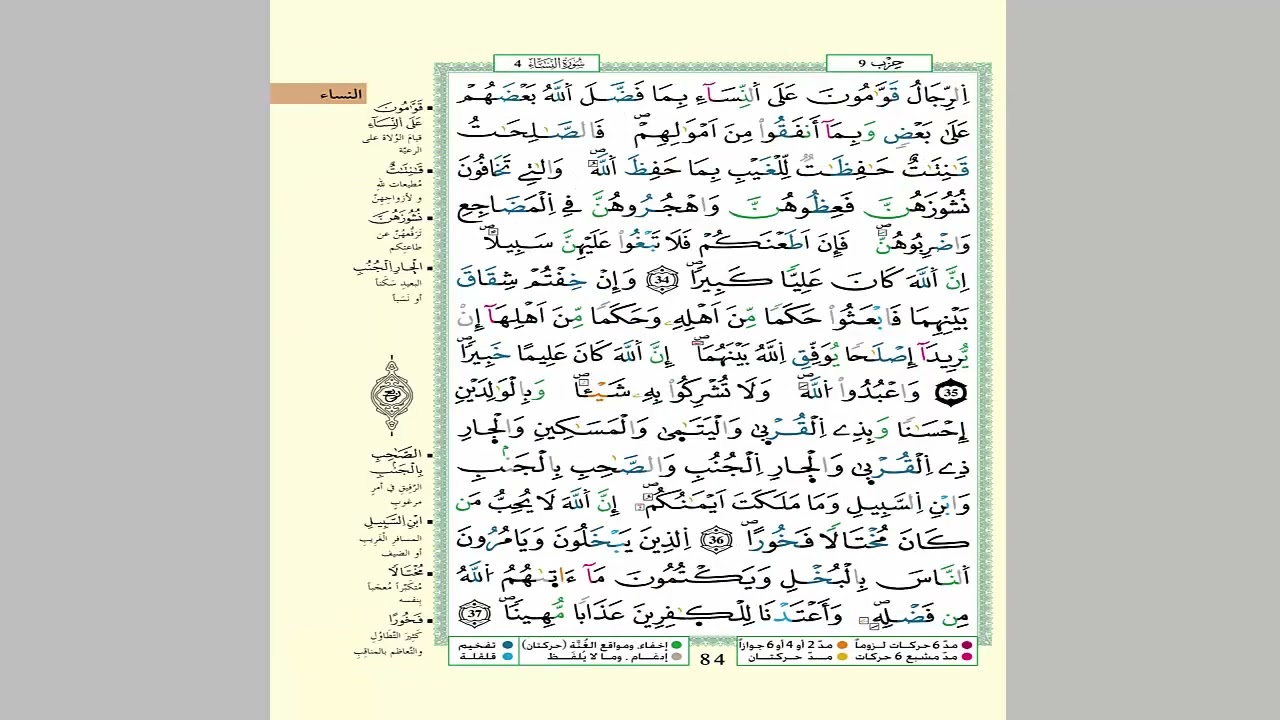 حِزْب 9
سُورَةُ النِّسَاءِ 4
النساء
اِ۬لرِّجَالُ قَوَّٰمُونَ عَلَى اَ۬لنِّسَآءِ بِمَا فَضَّلَ اَ۬للَّهُ بَعْضَهُمْ
عَلَىٰ بَعْضٖ وَبِمَآ أَنفَقُواْ مِنَ اَمْوَٰلِهِمْۖ فَالصَّٰلِحَٰتُ
قَٰنِتَٰتٌ حَٰفِظَٰتٞ لِّلْغَيْبِ بِمَا حَفِظَ اَ۬للَّهُۖ وَالتِے تَخَافُونَ
نُشُوزَهُنَّ فَعِظُوهُنَّ وَاهْجُرُوهُنَّ فِے اِ۬لْمَضَاجِعِ
وَاضْرِبُوهُنَّۖ فَإِنَ اَطَعْنَكُمْ فَلَا تَبْغُواْ عَلَيْهِنَّ سَبِيلاًۖ
اِنَّ اَ۬للَّهَ كَانَ عَلِيّاٗ كَبِيراٗۖ 34 وَإِنْ خِفْتُمْ شِقَاقَ
بَيْنِهِمَا فَابْعَثُواْ حَكَماٗ مِّنَ اَهْلِهِۦ وَحَكَماٗ مِّنَ اَهْلِهَآ إِنْ
يُّرِيدَآ إِصْلَٰحاٗ يُوَفِّقِ اِ۬للَّهُ بَيْنَهُمَآۖ إِنَّ اَ۬للَّهَ كَانَ عَلِيماً خَبِيراٗۖ
35 وَاعْبُدُواْ اُ۬للَّهَۖ وَلَا تُشْرِكُواْ بِهِۦ شَيْـٔاٗۖ وَبِالْوَٰلِدَيْنِ
إِحْسَٰناٗ وَبِذِے اِ۬لْقُرْبَىٰ وَالْيَتَٰمَىٰ وَالْمَسَٰكِينِ وَالْجَارِ
ذِے اِ۬لْقُرْبَىٰ وَالْجَارِ اِ۬لْجُنُبِ وَالصَّٰحِبِ بِالْجَنۢبِ
وَابْنِ اِ۬لسَّبِيلِ وَمَا مَلَكَتَ اَيْمَٰنُكُمُۥٓۖ إِنَّ اَ۬للَّهَ لَا يُحِبُّ مَن
كَانَ مُخْتَالاٗ فَخُوراًۖ 36 اِ۬لذِينَ يَبْخَلُونَ وَيَامُرُونَ
اَ۬لنَّاسَ بِالْبُخْلِ وَيَكْتُمُونَ مَآ ءَاتَىٰهُمُ اُ۬للَّهُ
مِن فَضْلِهِۦۖ وَأَعْتَدْنَا لِلْكَٰفِرِينَ عَذَاباٗ مُّهِيناٗۖ 37
قَوَّٰمُونَ
عَلَى النِّسَآءِ
قيامَ الوُلاة على
الرعيّة
قَٰنِتَٰتٌ
مُطيعات لله
و لأزواجهنّ
نُشُوزَهُنَّ
تَرَفُّعَهُنّ عن
طاعتِكم
الْجَارِ الْجُنُبِ
البعيدِ سَكَناً
أو نَسَباً
ربع
الصَّاحِبِ
بِالْجَنۢبِ
الرّفيق في أمر
مرغوب
ابْنِ السَّبِيلِ
المسافرِ الغريبِ
أو الضيف
مُخْتَالاً
مُتكبّراً مُعجباً
بنفسه
فَخُوراً
كَثيرَ التَّطاوُلِ
والتّعاظم بالمناقِبِ
مدّ 6 حركات لـزوماً مدّ 2 أو 4 أو 6 جوازاً إخفاء، ومواقع الغُنَّة (حركتان) تفخيم
مدّ مشبع 6 حركات مـدّ حـركتـان إدغـام ، ومـا لا يُلفَـظ قلقلة
84